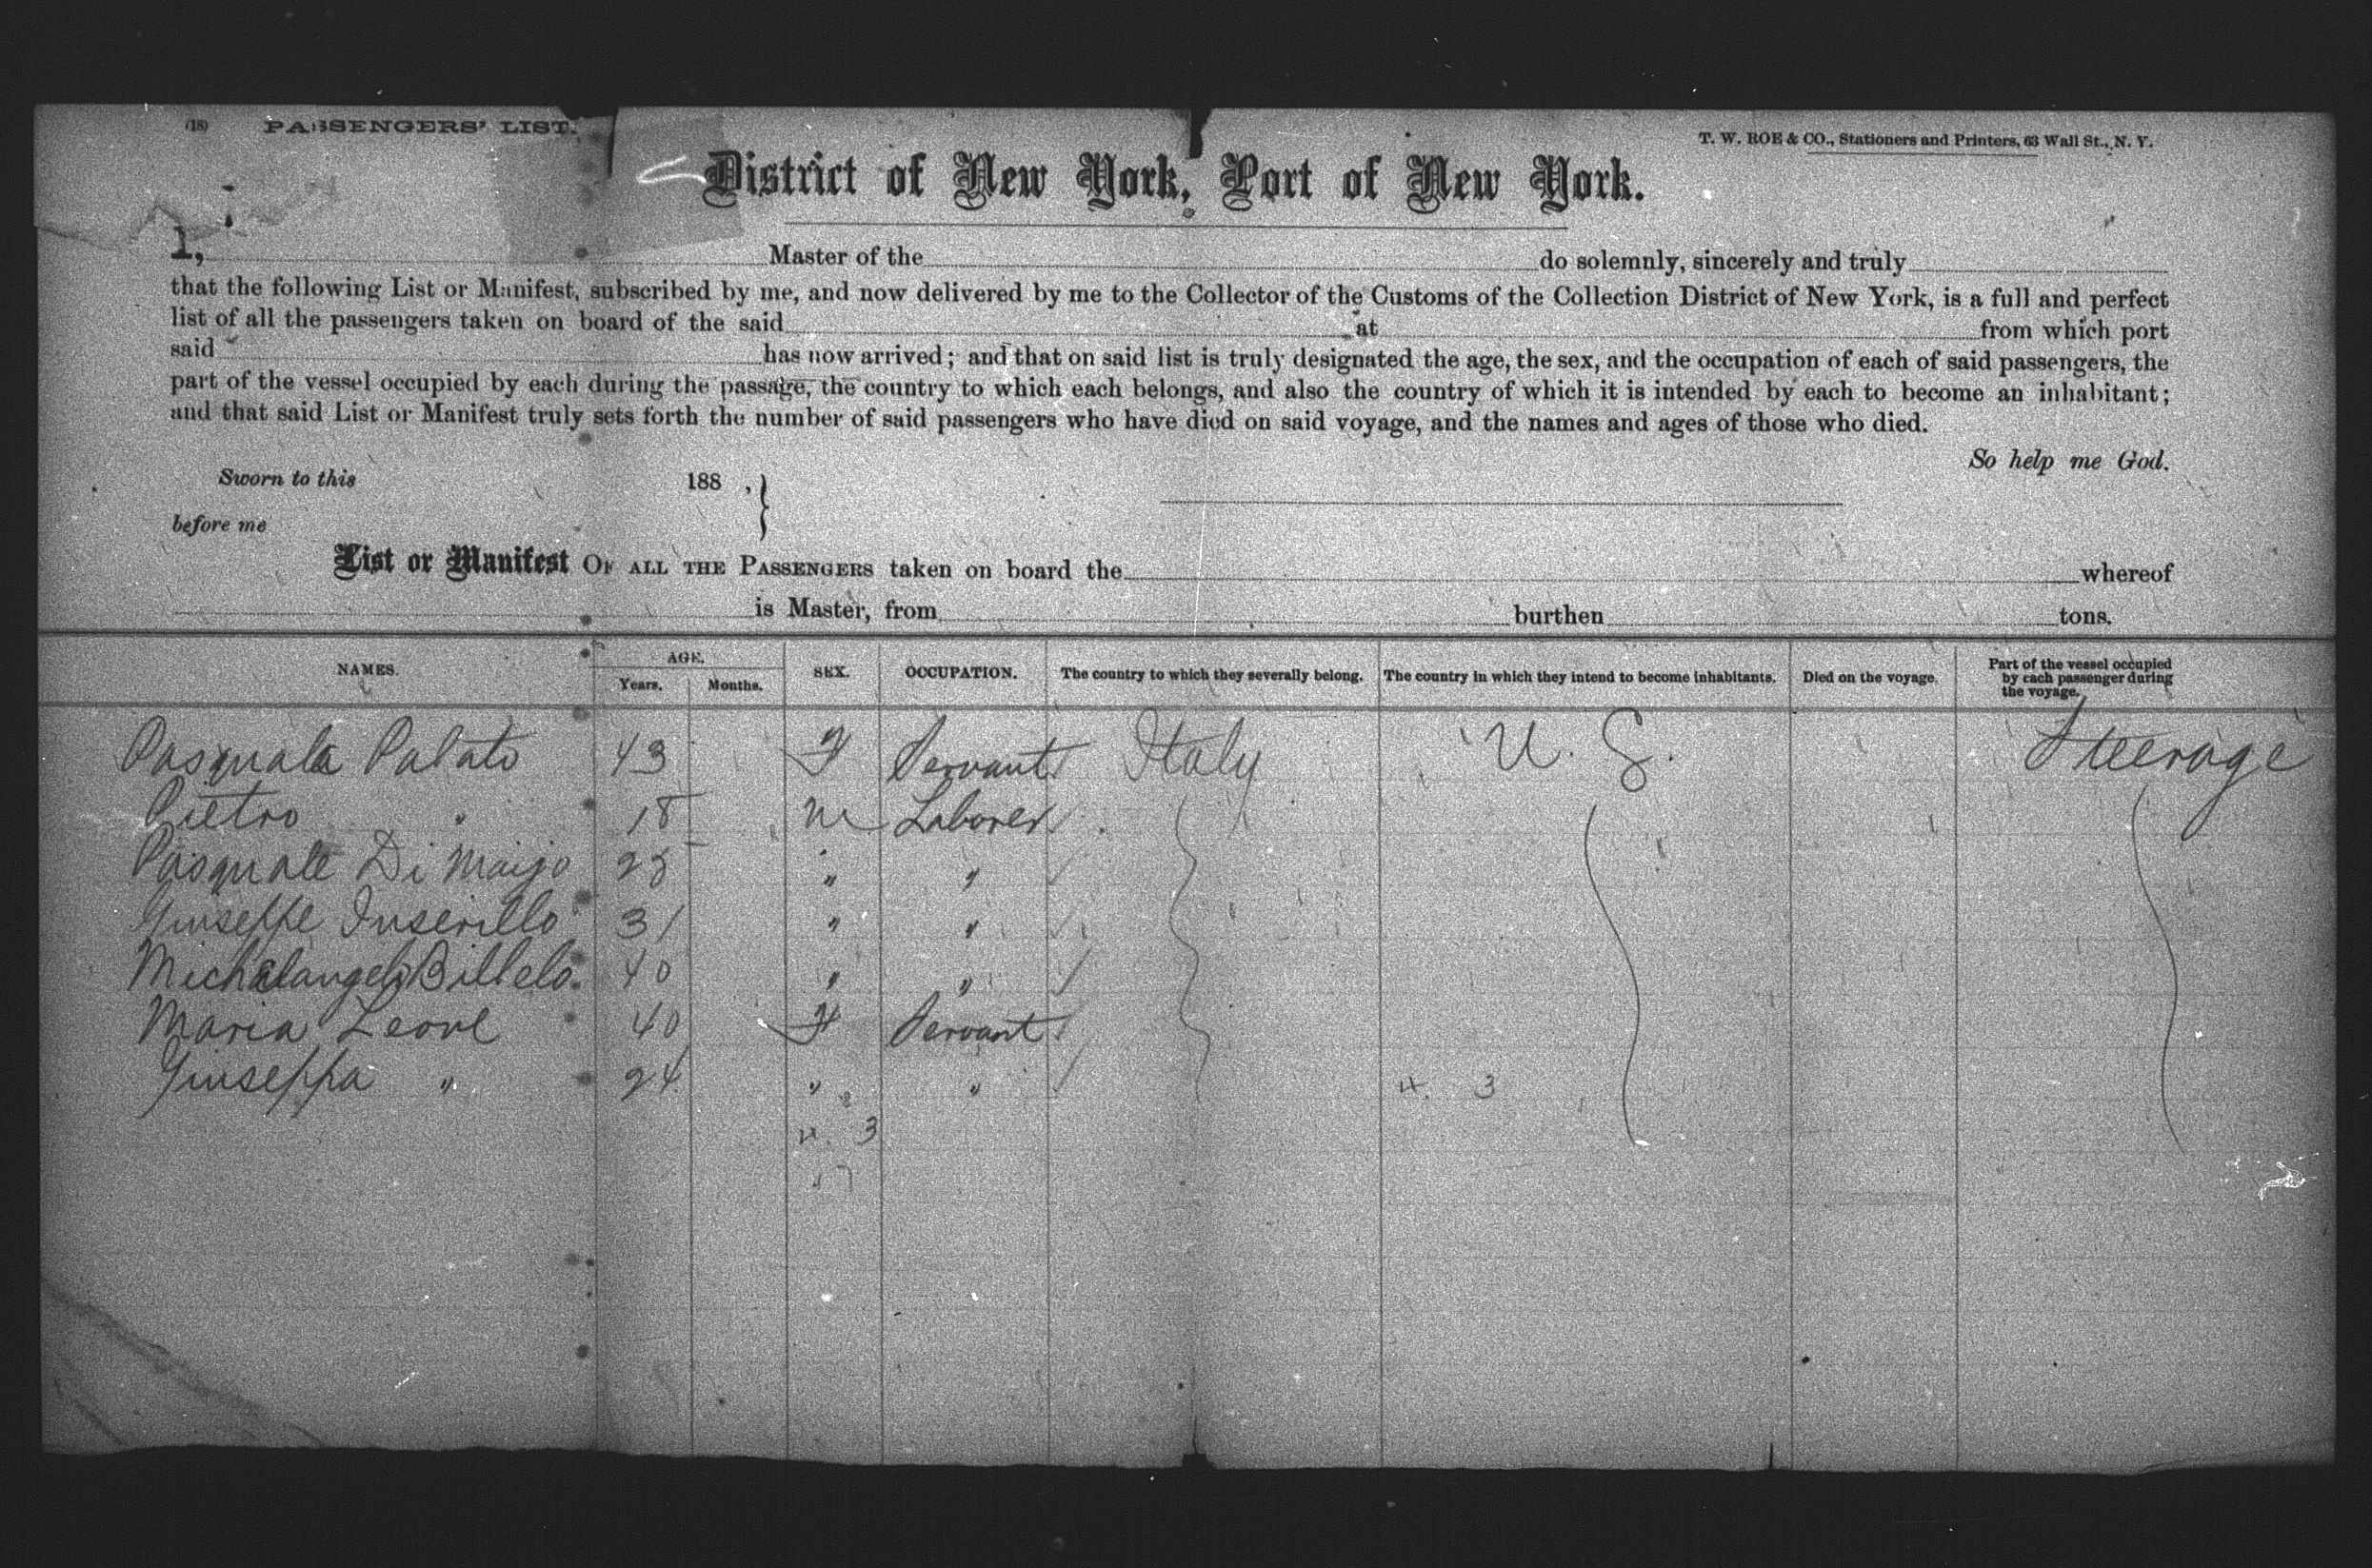 (18) PASSENGERS' LIST.
T. W. ROE & CO., Stationers and Printers, 63 Wall St., N. Y.
District of New York, Port of New York.
I, Master of the do solemnly, sincerely and truly
that the following List or Manifest, subscribed by me, and now delivered by me to the Collector of the Customs of the Collection District of New York, is a full and perfect
list of all the passengers taken on board of the said at from which port
said has now arrived; and that on said list is truly designated the age, the sex, and the occupation of each of said passengers, the
part of the vessel occupied by each during the passage, the country to which each belongs, and also the country of which it is intended by each to become an inhabitant;
and that said List or Manifest truly sets forth the number of said passengers who have died on said voyage, and the names and ages of those who died.
So help me God.
Sworn to this 188 ,
before me
List or Manifest OF ALL THE PASSENGERS taken on board the whereof
is Master, from burthen tons.
NAMES. AGE. Years. Months. SEX. OCCUPATION. The country to which they severally belong. The country in which they intend to become inhabitants. Died on the voyage. Part of the vessel occupied by each passenger during the voyage.
Pasquala Palato 43 F Servant Italy U. S. Steerage
Pietro " 18 M Laborer
Pasquale Di Maijo 28 " "
Giuseppe Inserillo 31 " "
Michelangelo Billelo 40 " "
Maria Leone 40 F Servant
Giuseppa " 24 " " 4. 3
4. 3
7